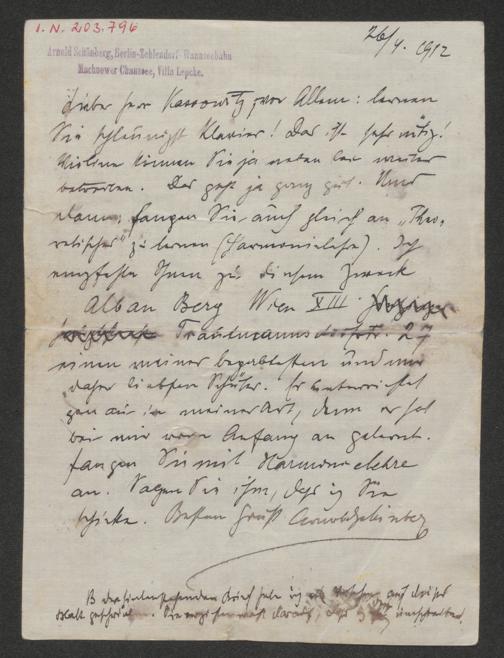 I. N. 203.796
26/4. 1912
Arnold Schönberg, Berlin-Zehlendorf-Wannseebahn
Machnower Chaussee, Villa Lepcke.
Lieber Herr Kassowitz, vor Allem: lernen
Sie schleunigst Klavier! Das ist sehr nötig!
Violine können Sie ja neben bei weiter
betreiben. Das geht ja ganz gut. Und
dann, fangen Sie auch gleich an „Theo-
retisches" zu lernen (Harmonielehre). Ich
empfehle Ihnen zu diesem Zweck
Alban Berg Wien XIII
Trauttmansdorffstr. 27
einen meiner begabtesten und mir
daher liebsten Schüler. Er unterrichtet
ganz in meiner Art, denn er hat
bei mir von Anfang an gelernt.
Fangen Sie mit Harmonielehre
an. Sagen Sie ihm, dass ich Sie
schicke. Besten Gruß Arnold Schönberg
Brief habe ich auf dieses
Blatt geschrieben.